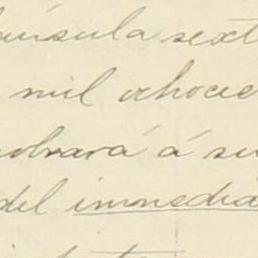 láusula sext
mil ochocie
obrará á su
del inmedia